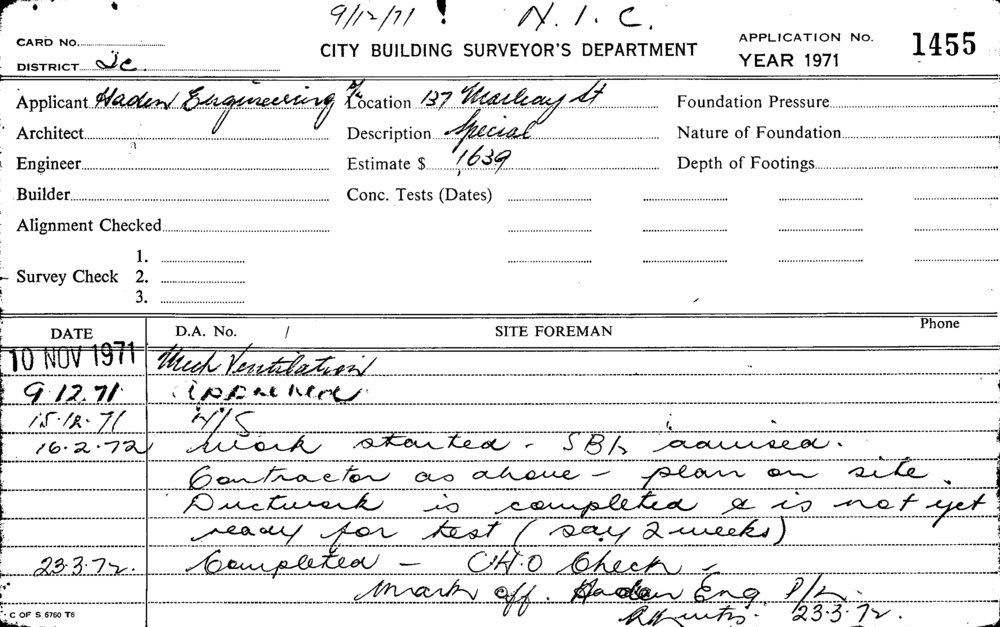 9/12/71 N. I. C.
CARD No. CITY BUILDING SURVEYOR'S DEPARTMENT APPLICATION No. 1455
DISTRICT 2c YEAR 1971
Applicant Haden Engineering P/L Location 137 Macleay St Foundation Pressure
Architect Description Special Nature of Foundation
Engineer Estimate $ 1639 Depth of Footings
Builder Conc. Tests (Dates)
Alignment Checked
1.
Survey Check 2.
3.
DATE D.A. No. / SITE FOREMAN Phone
10 NOV 1971 Mech Ventilation
9.12.71 approved
15.12.71 N/S
16.2.72 Work started - SBI advised.
Contractor as above - plan on site.
Ductwork is completed & is not yet
ready for test (say 2 weeks)
23.3.72. Completed - CHO Check -
Mark off. Haden Eng. P/L.
23.3.72.
C OF S 6760 T6